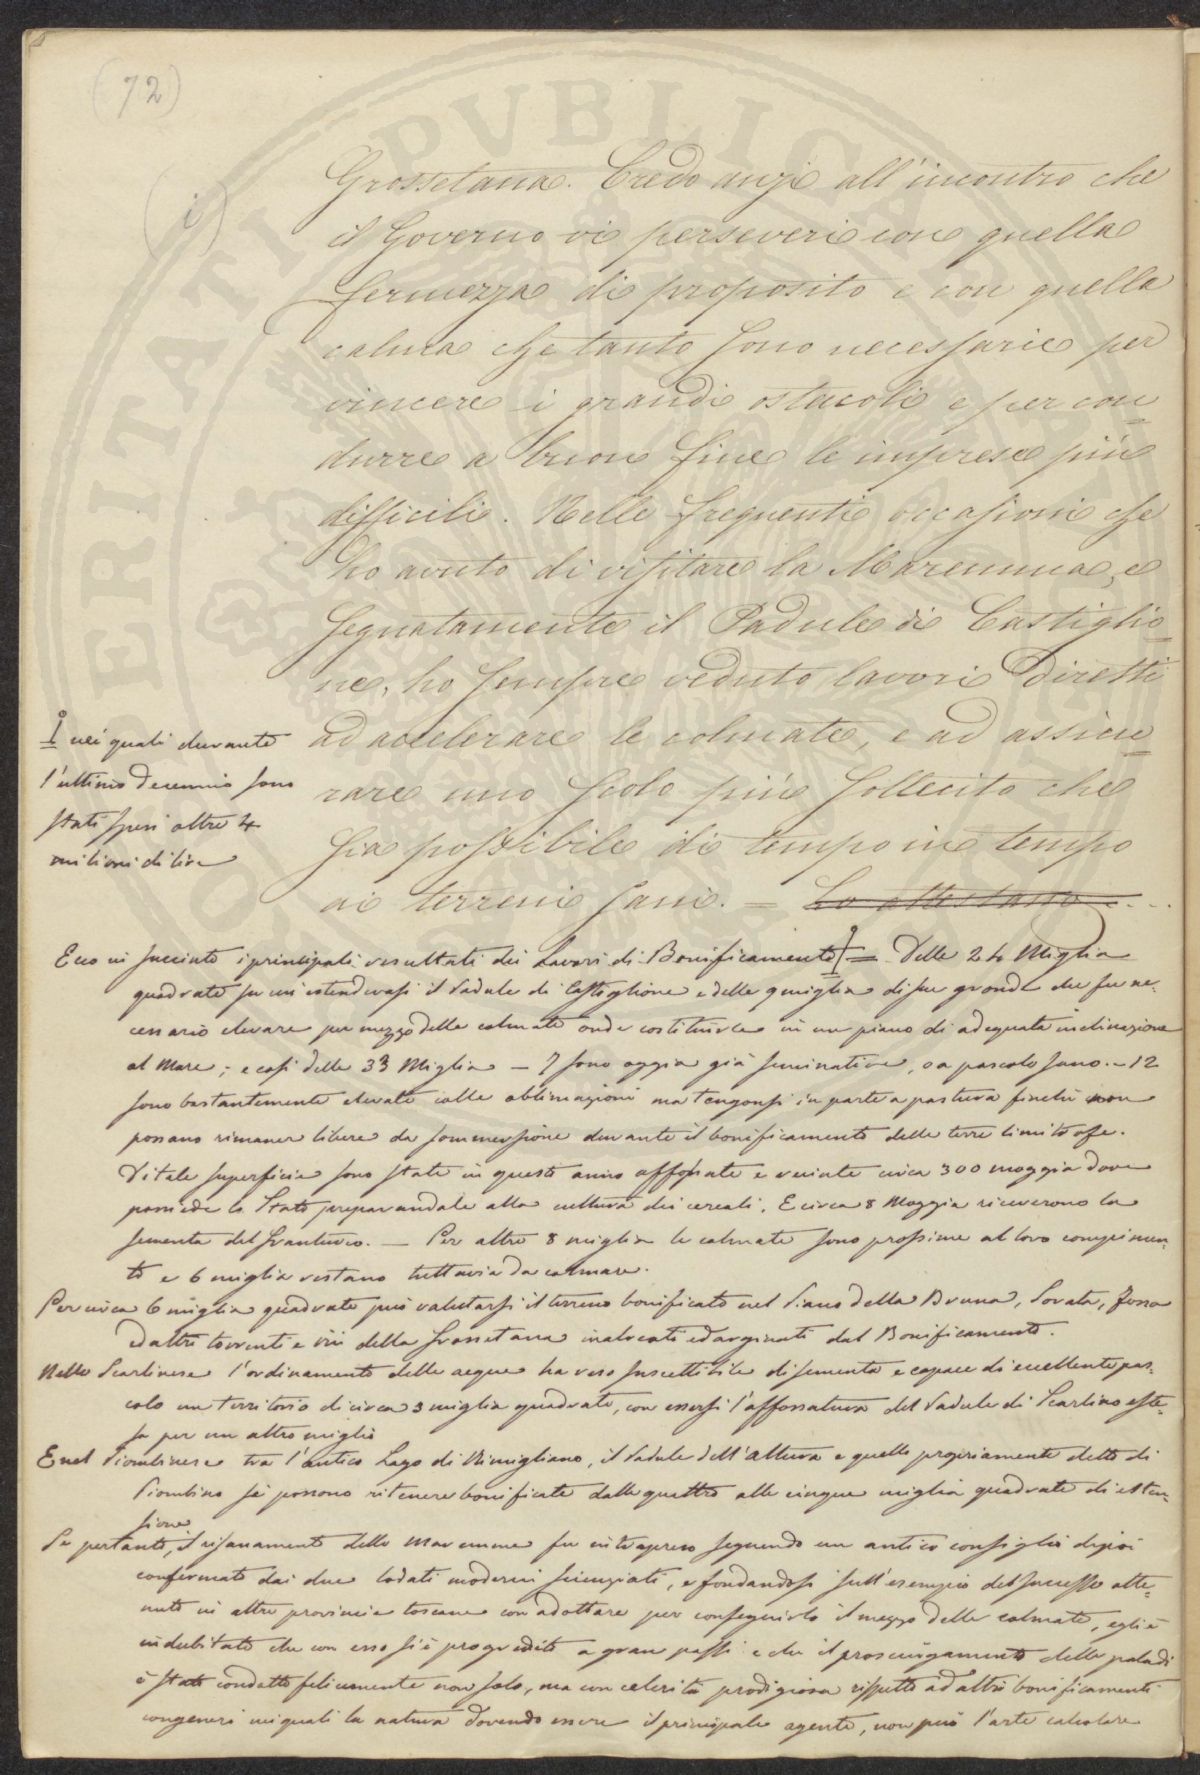 (72)
(i)
Grossetana. Credo anzi all'incontro che
il Governo vi perseveri con quella
fermezza di proposito e con quella
calma che tanto sono necessarie per
vincere i grandi ostacoli e per con=
durre a buon fine le imprese più
difficili. Nelle frequenti occasioni che
ho avuto di visitare la Maremma, e
segnatamente il Padule di Castiglio=
ne, ho sempre veduto lavori diretti
ad accelerare le colmate, e ad assicu=
rare uno scolo più sollecito che
sia possibile di tempo in tempo
ai terreni sani. = Lo attestano
nei quali durante
l'ultimo decennio sono
stati spesi oltre 4
milioni di lire
Ecco in succinto i principali resultati dei Lavori di Bonificamento = Delle 24 Miglia
quadrate su cui estendevasi il Padule di Castiglione e delle 9 miglia di sue gronde che fu ne-
cessario elevare per mezzo delle colmate onde costituirle in un piano di adeguata inclinazione
al Mare; e così delle 33 Miglia – 7 sono oggia già seminative, o a pascolo sano. – 12
sono bastantemente elevate colle oblimazioni ma tengonsi in parte a pastura finchè non
possano rimaner libere da sommersione durante il bonificamento delle terre limitrofe.
Di tale superficie sono state in questo anno affossate e circa 300 moggia dove
possiede lo Stato preparandole alla cultura dei cereali. E circa 8 Moggia riceverono la
sementa del granturco. — Per altre 8 miglia le colmate sono prossime al loro compimen-
to e 6 miglia restano tuttavia da colmare.
Per circa 6 miglia quadrate può valutarsi il terreno bonificato nel Piano della Bruna, Sovata, Fossa
ed altri torrenti e rii della Grossetana inalveati ed arginati dal Bonificamento.
Nello Scarlinese l'ordinamento delle acque ha reso suscettibile di sementa e capace di eccellente pas-
colo un territorio di circa 3 miglia quadrate, con essersi l'affossatura del Padule di Scarlino este-
sa per un altro miglio
E nel Piombinese tra l'antico Lago di Rimigliano, il Padule dell'Altura e quello propriamente detto di
Piombino si possono ritenere bonificate dalle quattro alle cinque miglia quadrate di esten-
sione
Se pertanto, il risanamento delle Maremme fu intrapreso seguendo un antico consiglio dipoi
confermato dai due lodati moderni scienziati, e fondandosi sull'esempio del successo otte-
nuto in altre provincie toscane con adottare per conseguirlo il mezzo delle colmate, egli è
indubitato che con esso si è progredito a gran passi e che il prosciugamento delle paludi
è stato condotto felicemente non solo, ma con celerità prodigiosa rispetto ad altri bonificamenti
congeneri nei quali la natura dovendo essere il principale agente, non può l'arte calcolare
PERITATI PVBLICAE